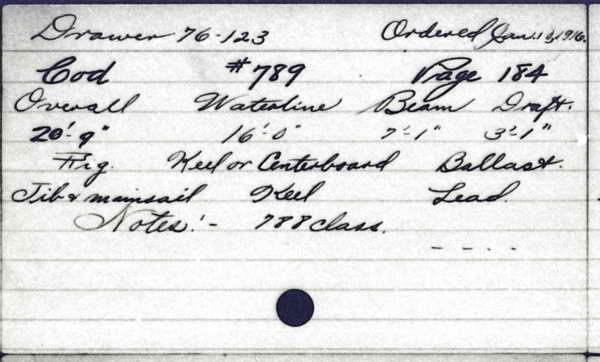 Drawer 76-123 Ordered Jan. 13, 1916.
Cod #789 Page 184
Overall Waterline Beam Draft.
20'-9" 16'-0" 7'-1" 3'-1"
Rig. Keel or Centerboard Ballast.
Jib & mainsail Keel Lead.
Notes:- 788 class.